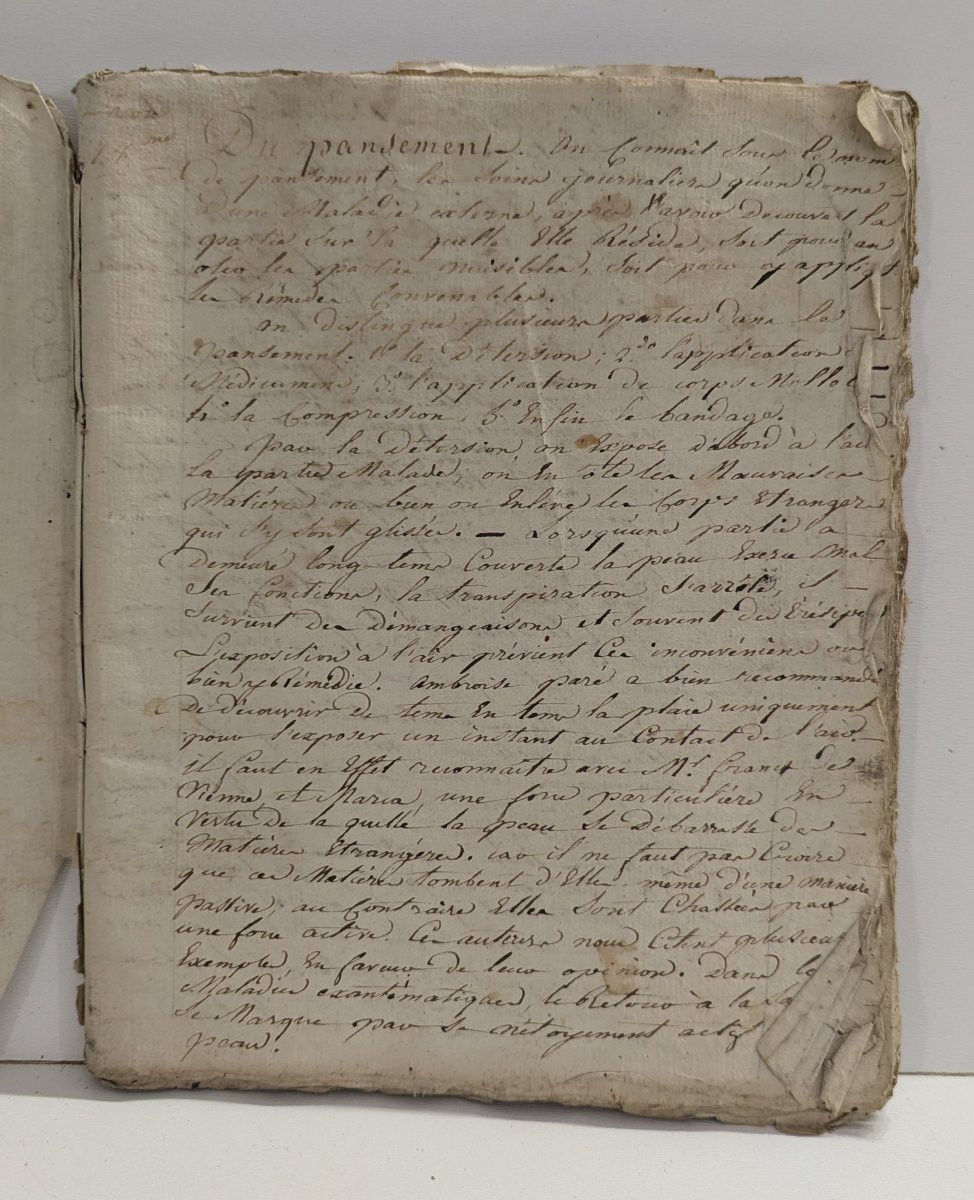 Du pansement. On Connait Sous le nom
de pansement, les Soins journaliers qu'on donne
a une Maladie externe, après avoir Decouvert la
partie Sur la quelle Elle Réside, Soit pour en
oter les parties nuisibles, Soit pour y appliq
les Rémèdes Convenables.
on distingue plusieurs parties dans le
pansement. 1° la Détersion; 2.° l'application
Médicamens, 3° l'application de corps Mollo
4° la Compression, 5.° Enfin le bandage.
par la Détersion, on Expose d'abord à l'ai
la partie Malade; on En ôte les Mauvaises
Matières ou bien on Enlève les Corps Etrangers
qui s'y sont glissés. — Lorsqu'une partie a
Demeuré long-tems Couverte la peau Exerce Mal
Ses fonctions, la transpiration s'arrête, il
Survient des Démangeaisons et Souvent des Erésipe
L'exposition à l'air prévient Ces inconvéniens ou
bien y Rémédie. Ambroise paré a bien recommandé
de découvrir de tems En tems la plaie uniquement
pour l'exposer un instant au Contact de l'air.
il faut en Effet reconnaitre avec Mr. franck de
Vienne, et Marca, une force particulière En
Vertu de la quelle la peau Se Débarrasse des
Matières Etrangères. car il ne faut pas Croire
que ces Matières tombent d'Elles même d'une manière
passive; au Contraire Elles Sont Chassées par
une force active. Ces auteurs nous Citent plusieurs
Exemples En faveur de leur opinion. Dans le
Maladies exantématiques, le Retour à la Sa
Se Marque par Se nétoyement actif
peau.